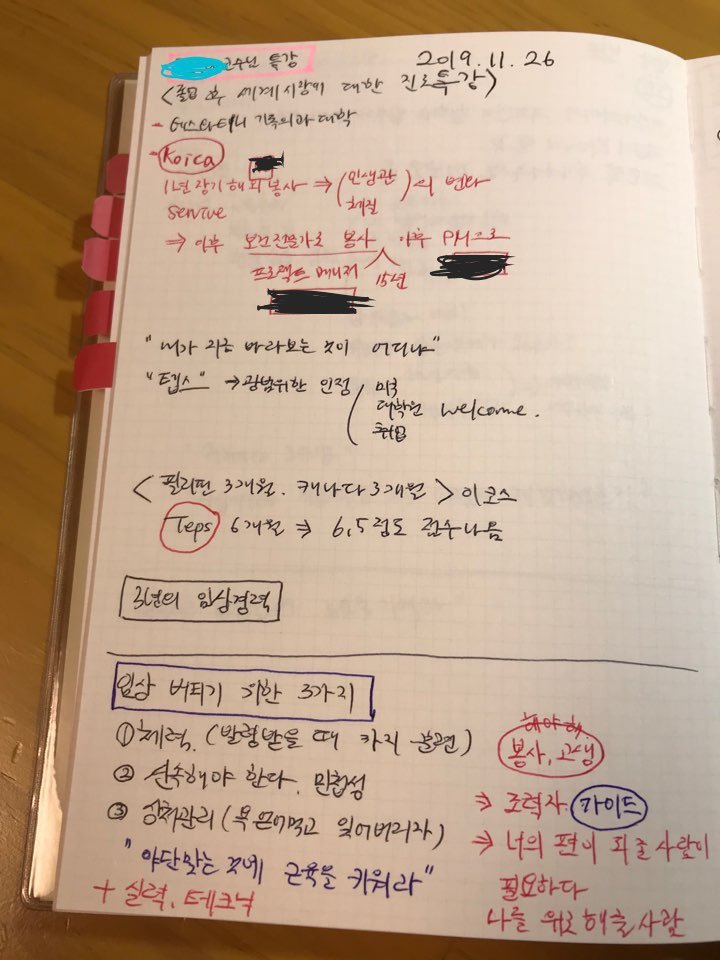 교수님 특강
2019.11.26
<졸업 후 세계시장에 대한 진로특강>
- 가톨릭의과대학
- Koica
1년 장기해외봉사 ⇒ (인생관 체질)의 변화
Service
⇒ 이후 보건전문가로 봉사 이후 PM으로
프로젝트 매니저 15년
"내가 지금 바라보는 곳이 어디냐"
"텝스" → 광범위한 인정
미국
대학원 welcome.
취업
<필리핀 3개월. 캐나다 3개월> 이코스
Teps 6개월 ⇒ 6.5정도 점수나옴
3년의 임상경력
임상 버티기 위한 3가지
① 체력. (발령받을 때 까지 훈련)
② 신속해야 한다. 민첩성
③ 상처관리 (욕 뜯어먹고 잊어버리자)
"야단맞는 것에 근육을 키워라"
+ 실력. 테크닉
해야해
봉사, 고생
⇒ 조력자 가이드
⇒ 너의 편이 되줄 사람이
필요하다
나를 위로해줄 사람